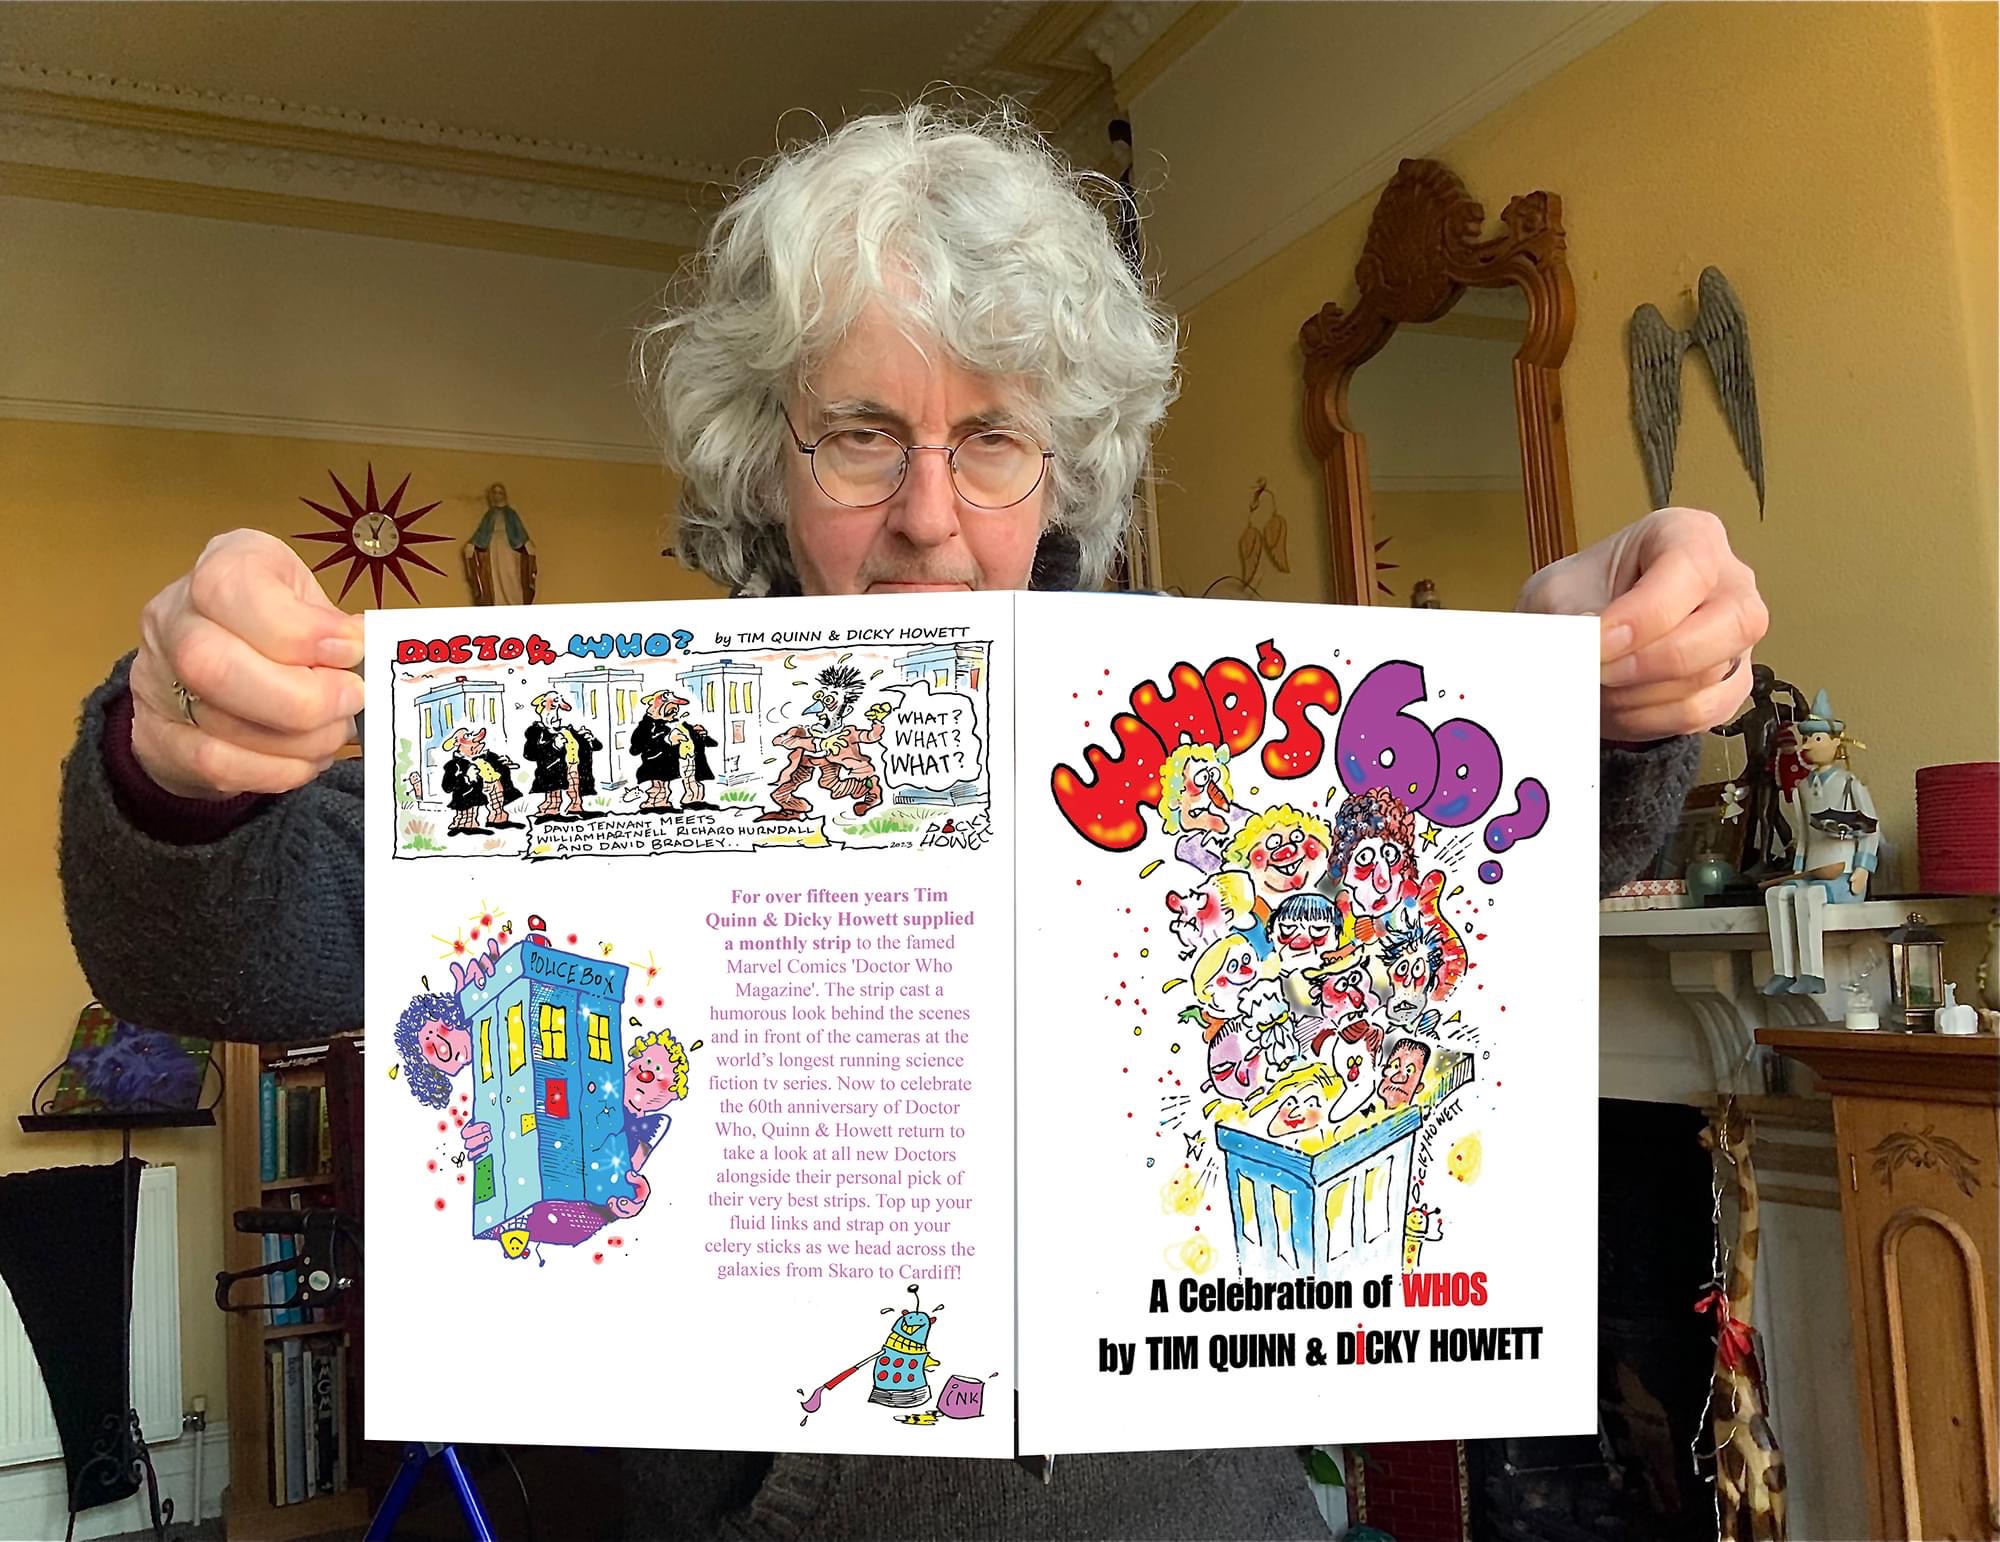 DOCTOR WHO?
by TIM QUINN & DICKY HOWETT
WHAT?
WHAT?
WHAT?
DAVID TENNANT MEETS
WILLIAM HARTNELL RICHARD HURNDALL
AND DAVID BRADLEY..
2023
DICKY
HOWETT
For over fifteen years Tim
Quinn & Dicky Howett supplied
a monthly strip to the famed
Marvel Comics 'Doctor Who
Magazine'. The strip cast a
humorous look behind the scenes
and in front of the cameras at the
world's longest running science
fiction tv series. Now to celebrate
the 60th anniversary of Doctor
Who, Quinn & Howett return to
take a look at all new Doctors
alongside their personal pick of
their very best strips. Top up your
fluid links and strap on your
celery sticks as we head across the
galaxies from Skaro to Cardiff!
POLICE BOX
iNK
WHO'S 60?
DICKY HOWETT
A Celebration of WHOS
by TIM QUINN & DiCKY HOWETT
MGM